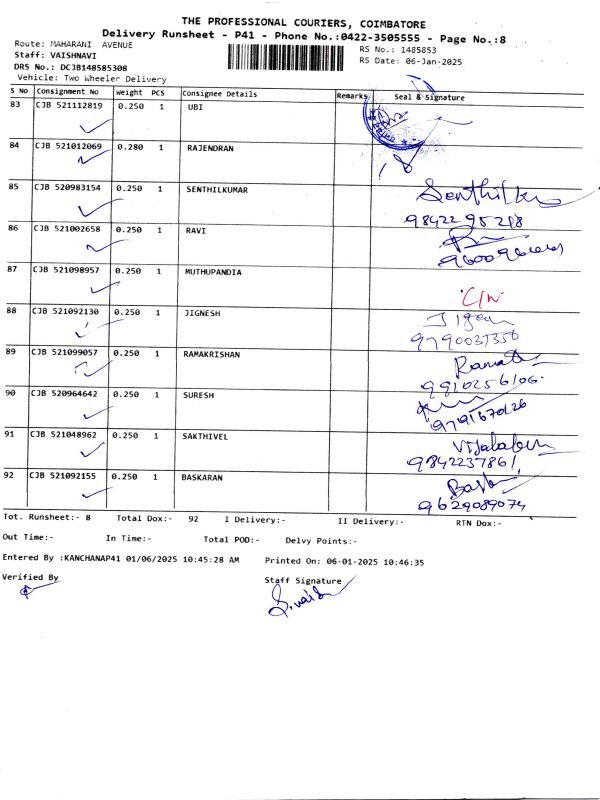 THE PROFESSIONAL COURIERS, COIMBATORE
Delivery Runsheet - P41 - Phone No.:0422-3505555 - Page No.:8
Route: MAHARANI AVENUE
RS No.: 1485853
Staff: VAISHNAVI
RS Date: 06-Jan-2025
DRS No.: DCJB148585308
Vehicle: Two Wheeler Delivery
S No Consignment No Weight PCS Consignee Details Remarks Seal & Signature
83 CJB 521112819 0.250 1 UBI
84 CJB 521012069 0.280 1 RAJENDRAN
85 CJB 520983154 0.250 1 SENTHILKUMAR
9842295288
86 CJB 521002658 0.250 1 RAVI
87 CJB 521098957 0.250 1 MUTHUPANDIA
C/N
88 CJB 521092130 0.250 1 JIGNESH
9790037356
89 CJB 521099057 0.250 1 RAMAKRISHAN
90 CJB 520964642 0.250 1 SURESH
91 CJB 521048962 0.250 1 SAKTHIVEL
9842237861
92 CJB 521092155 0.250 1 BASKARAN
9629089074
Tot. Runsheet:- 8 Total Dox:- 92 I Delivery:- II Delivery:- RTN Dox:-
Out Time:- In Time:- Total POD:- Delvy Points:-
Entered By :KANCHANAP41 01/06/2025 10:45:28 AM Printed On: 06-01-2025 10:46:35
Verified By
Staff Signature